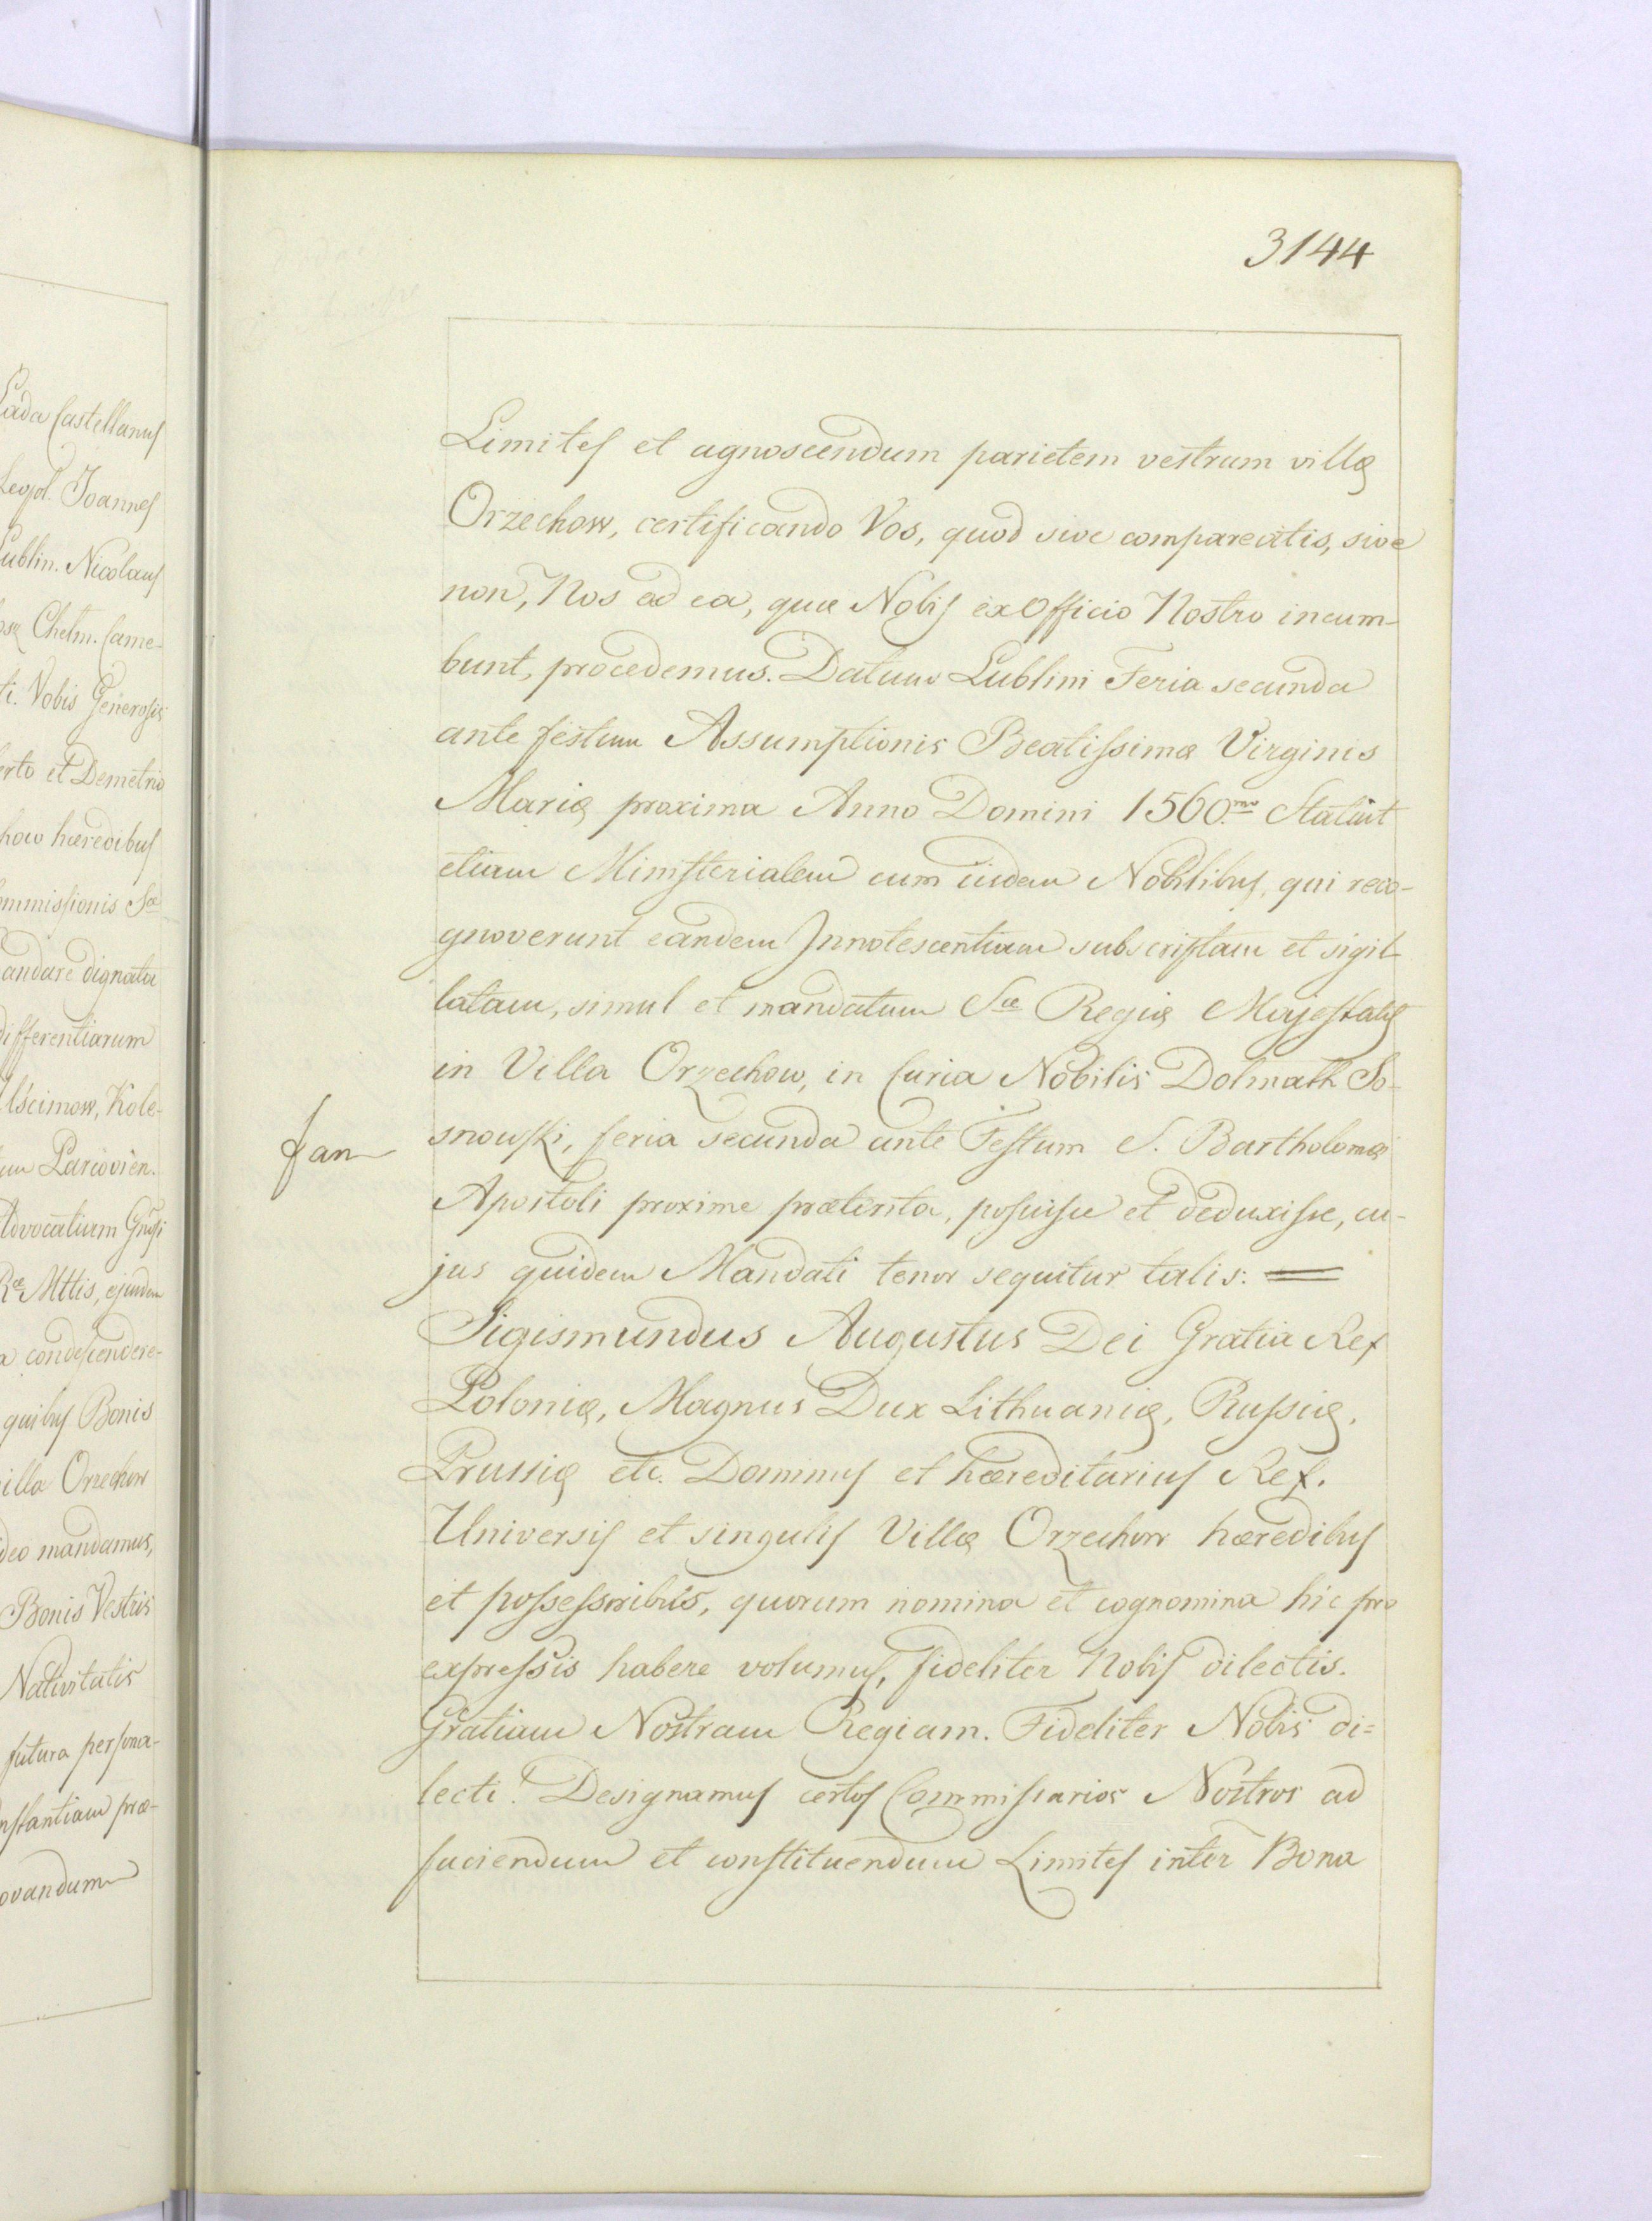 3144
Limites et agnoscendum parietem vestrum villæ
Orzechow, certificando Vos, quod sive compareatis, sive
non, Nos ad ea, quæ Nobis ex Officio Nostro incum-
bunt, procedemus. Datum Lublini Feria secunda
ante festum Assumptionis Beatissimæ Virginis
Mariæ proxima Anno Domini 1560.mo Statuit
etiam Ministerialem cum iisdem Nobilibus, qui reco-
gnoverunt eandem Innotescentiam subscriptam et sigil-
latam, simul et mandatum Sæ Regiæ Majestatis
in Villa Orzechow, in Curia Nobilis Dolmath So-
snowski, feria secunda ante Festum S. Bartholomæi
Apostoli proxime præterita, posuisse et deduxisse, cu-
jus quidem Mandati tenor sequitur talis: =
Sigismundus Augustus Dei Gratia Rex
Poloniæ, Magnus Dux Lithuaniæ, Russiæ,
Prussiæ etc. Dominus et hæreditarius Rex.
Universis et singulis Villæ Orzechow hæredibus
et possessoribus, quorum nomina et cognomina hic pro
expressis habere volumus, fideliter Nobis dilectis.
Gratiam Nostram Regiam. Fideliter Nobis di=
lecti! Designamus certos Commissarios Nostros ad
faciendum et constituendum Limites inter Bona
Castellanus
Leopol. Joannes
Lublin. Nicolaus
Chelm. Came-
ti. Vobis Generosis
erto et Demetrio
how hæredibus
ommissionis Sæ
andare dignata
differentiarum
Uścimow, Kole-
um Parcovien.
Advocatium Gnosi
Ræ Mttis, ejusdem
a condescendere-
quibus Bonis
illa Orzechow
deo mandamus,
Bonis Vestris
Nativitatis
futura persona-
nstantiam præ-
ovandum